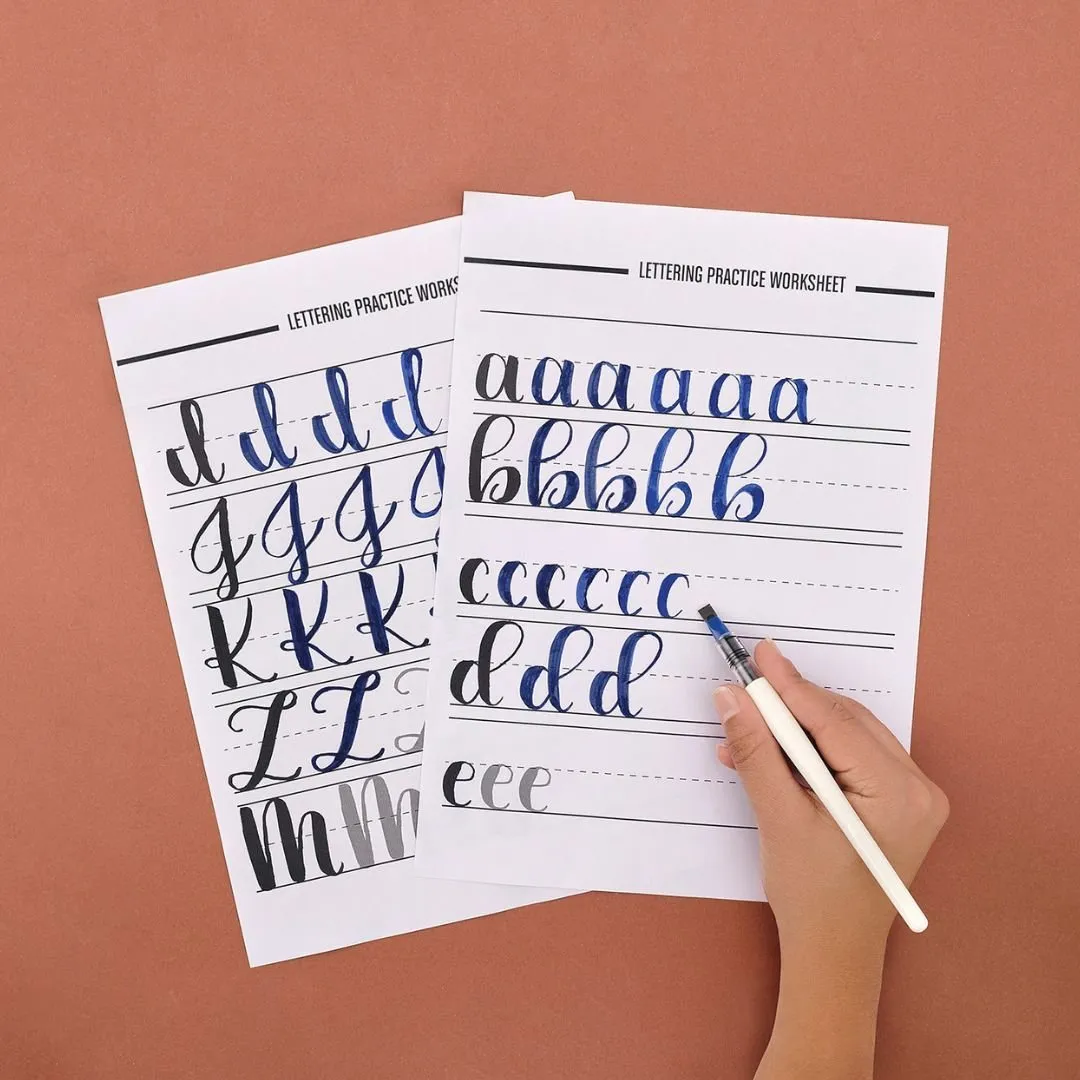 LETTERING PRACTICE WORKS
d d d d
g g g
K K K
Z Z
m m
LETTERING PRACTICE WORKSHEET
a a a a a a
b b b b b
c c c c c c
d d d
e e e